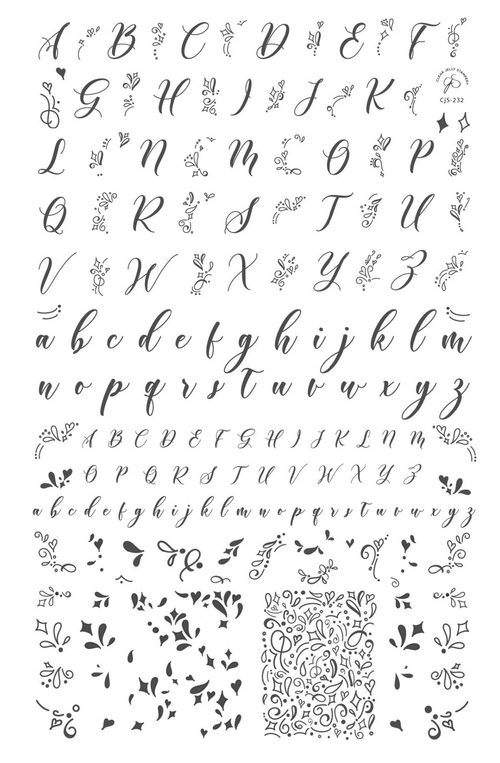 A B C D E F
G H I J K
CLEAR JELLY STAMPER
CJS-232
L N M O P
Q R S T U
V W X Y Z
a b c d e f g h i j k l m
n o p q r s t u v w x y z
A B C D E F G H I J K L N M
O P Q R S T U V W X Y Z
a b c d e f g h i j k l m n o p q r s t u v w x y z